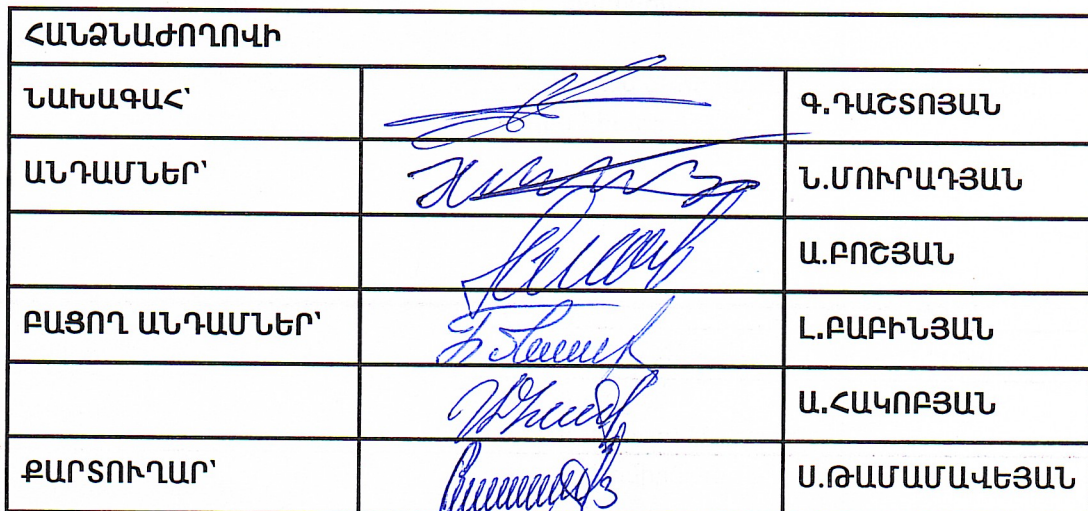 ՀԱՆՁՆԱԺՈՂՈՎԻ
ՆԱԽԱԳԱՀ՝ Գ.ԴԱՇՏՈՅԱՆ
ԱՆԴԱՄՆԵՐ՝ Ն.ՄՈՒՐԱԴՅԱՆ
Ա.ԲՈՇՅԱՆ
ԲԱՑՈՂ ԱՆԴԱՄՆԵՐ՝ Լ.ԲԱԲԻՆՅԱՆ
Ա.ՀԱԿՈԲՅԱՆ
ՔԱՐՏՈՒՂԱՐ՝ Ս.ԹԱՄԱՄԱՎԵՅԱՆ